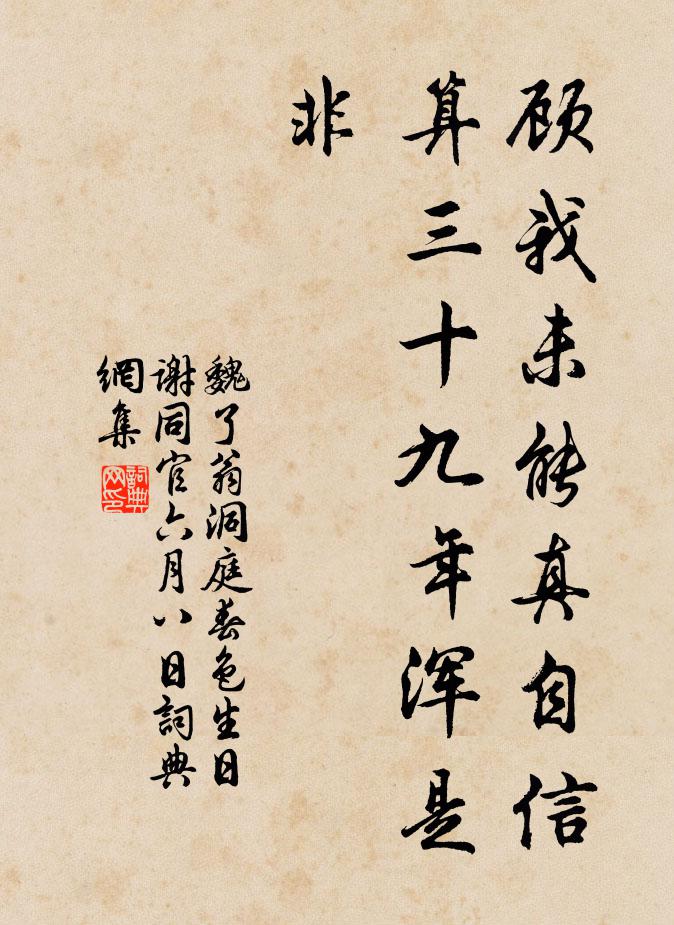 顾我未能真自信
算三十九年浑是
非
魏了翁洞庭春色生日
谢同官六月八日詞典
網集
詞典
网印